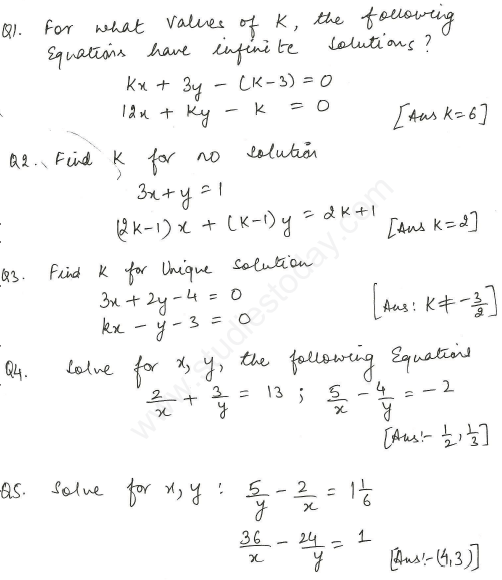 Q1. For what values of K, the following
Equations have infinite solutions?
kx + 3y - (K-3) = 0
12x + Ky - K = 0
[Ans K=6]
Q2. Find K for no solution
3x+y = 1
(2K-1) x + (K-1) y = 2K+1 [Ans K=2]
Q3. Find K for Unique solution
3x + 2y - 4 = 0
kx - y - 3 = 0
[Ans: K ≠ -3/2]
Q4. Solve for x, y, the following Equations
2/x + 3/y = 13 ; 5/x - 4/y = -2
[Ans:- 1/2, 1/3]
Q5. Solve for x, y : 5/y - 2/x = 1 1/6
36/x - 24/y = 1 [Ans:-(4,3)]
www.studiestoday.com